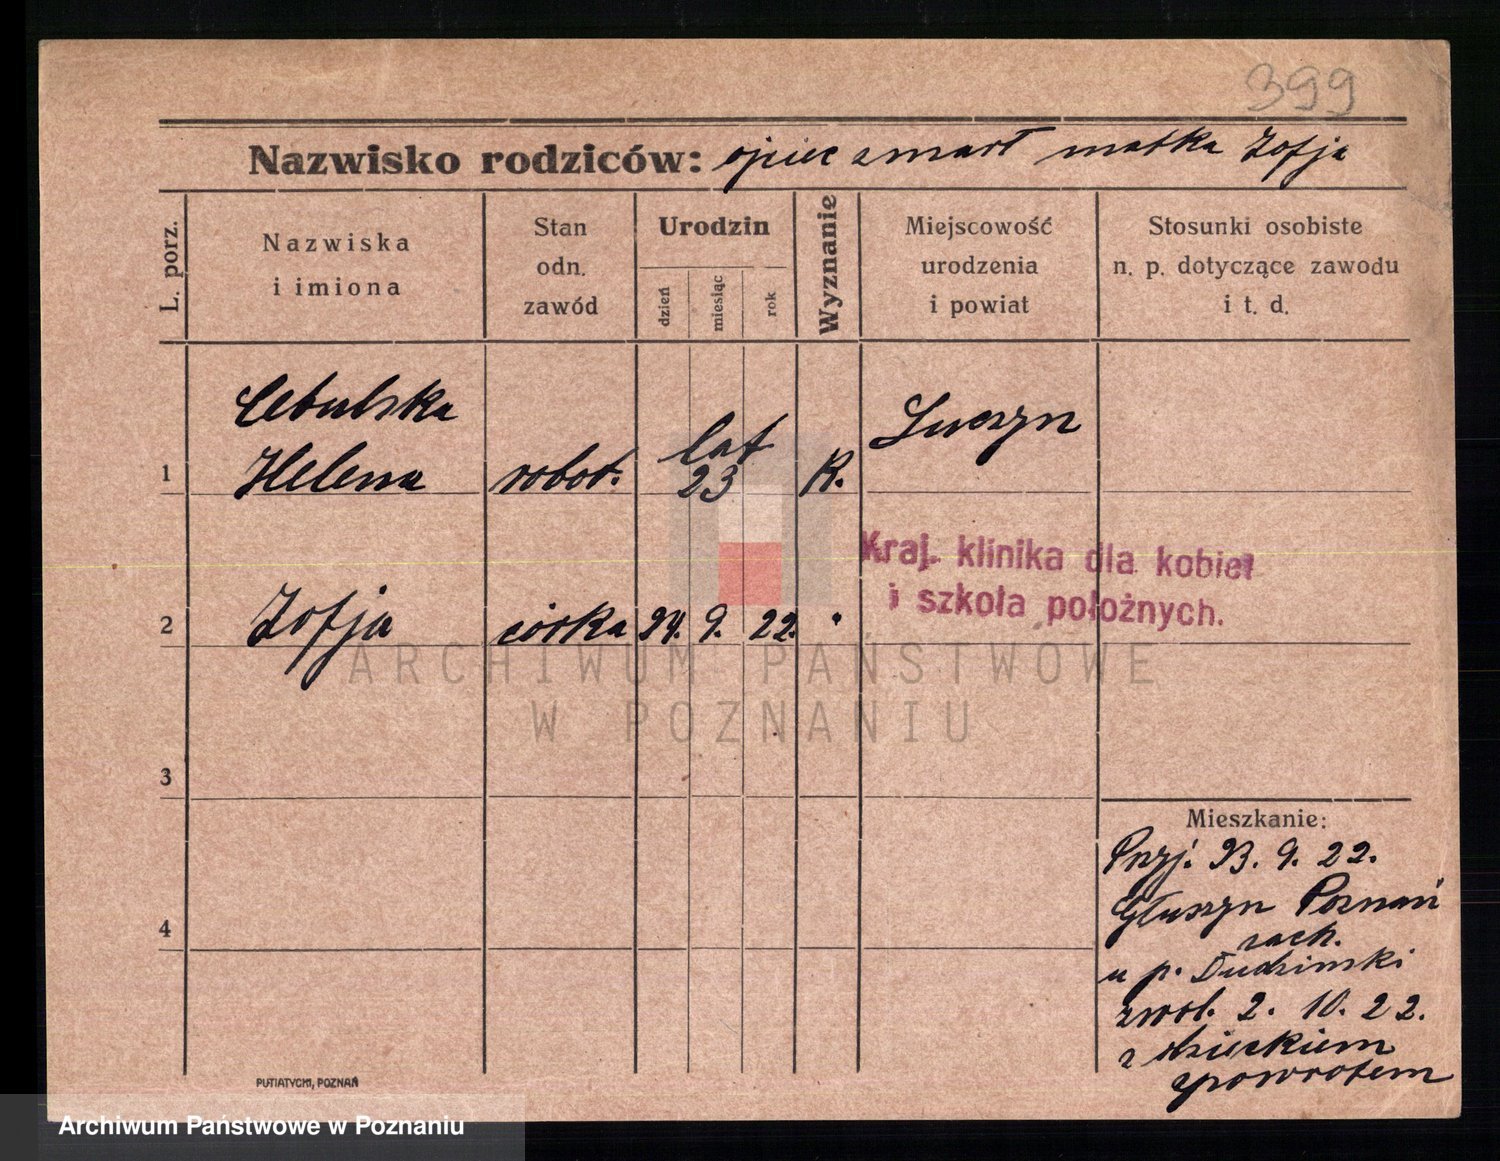 399
Nazwisko rodziców: ojciec zmarł matka Zofja
L. porz.
Nazwiska
i imiona
Stan
odn.
zawód
Urodzin
dzień
miesiąc
rok
Wyznanie
Miejscowość
urodzenia
i powiat
Stosunki osobiste
n. p. dotyczące zawodu
i t. d.
Cebulska
1 Helena robot. lat 23 K.
Kraj. klinika dla kobiet
i szkoła położnych.
2 Zofja córka 24. 9. 22. "
ARCHIWUM PAŃSTWOWE
W POZNANIU
3
4
Mieszkanie:
Przyj. 23. 9. 22.
Głuszyn Poznań
zach.
u p. Dudzinski
zwol. 2. 10. 22.
z dzieckiem
zpowrotem
PUTIATYCKI, POZNAŃ
Archiwum Państwowe w Poznaniu